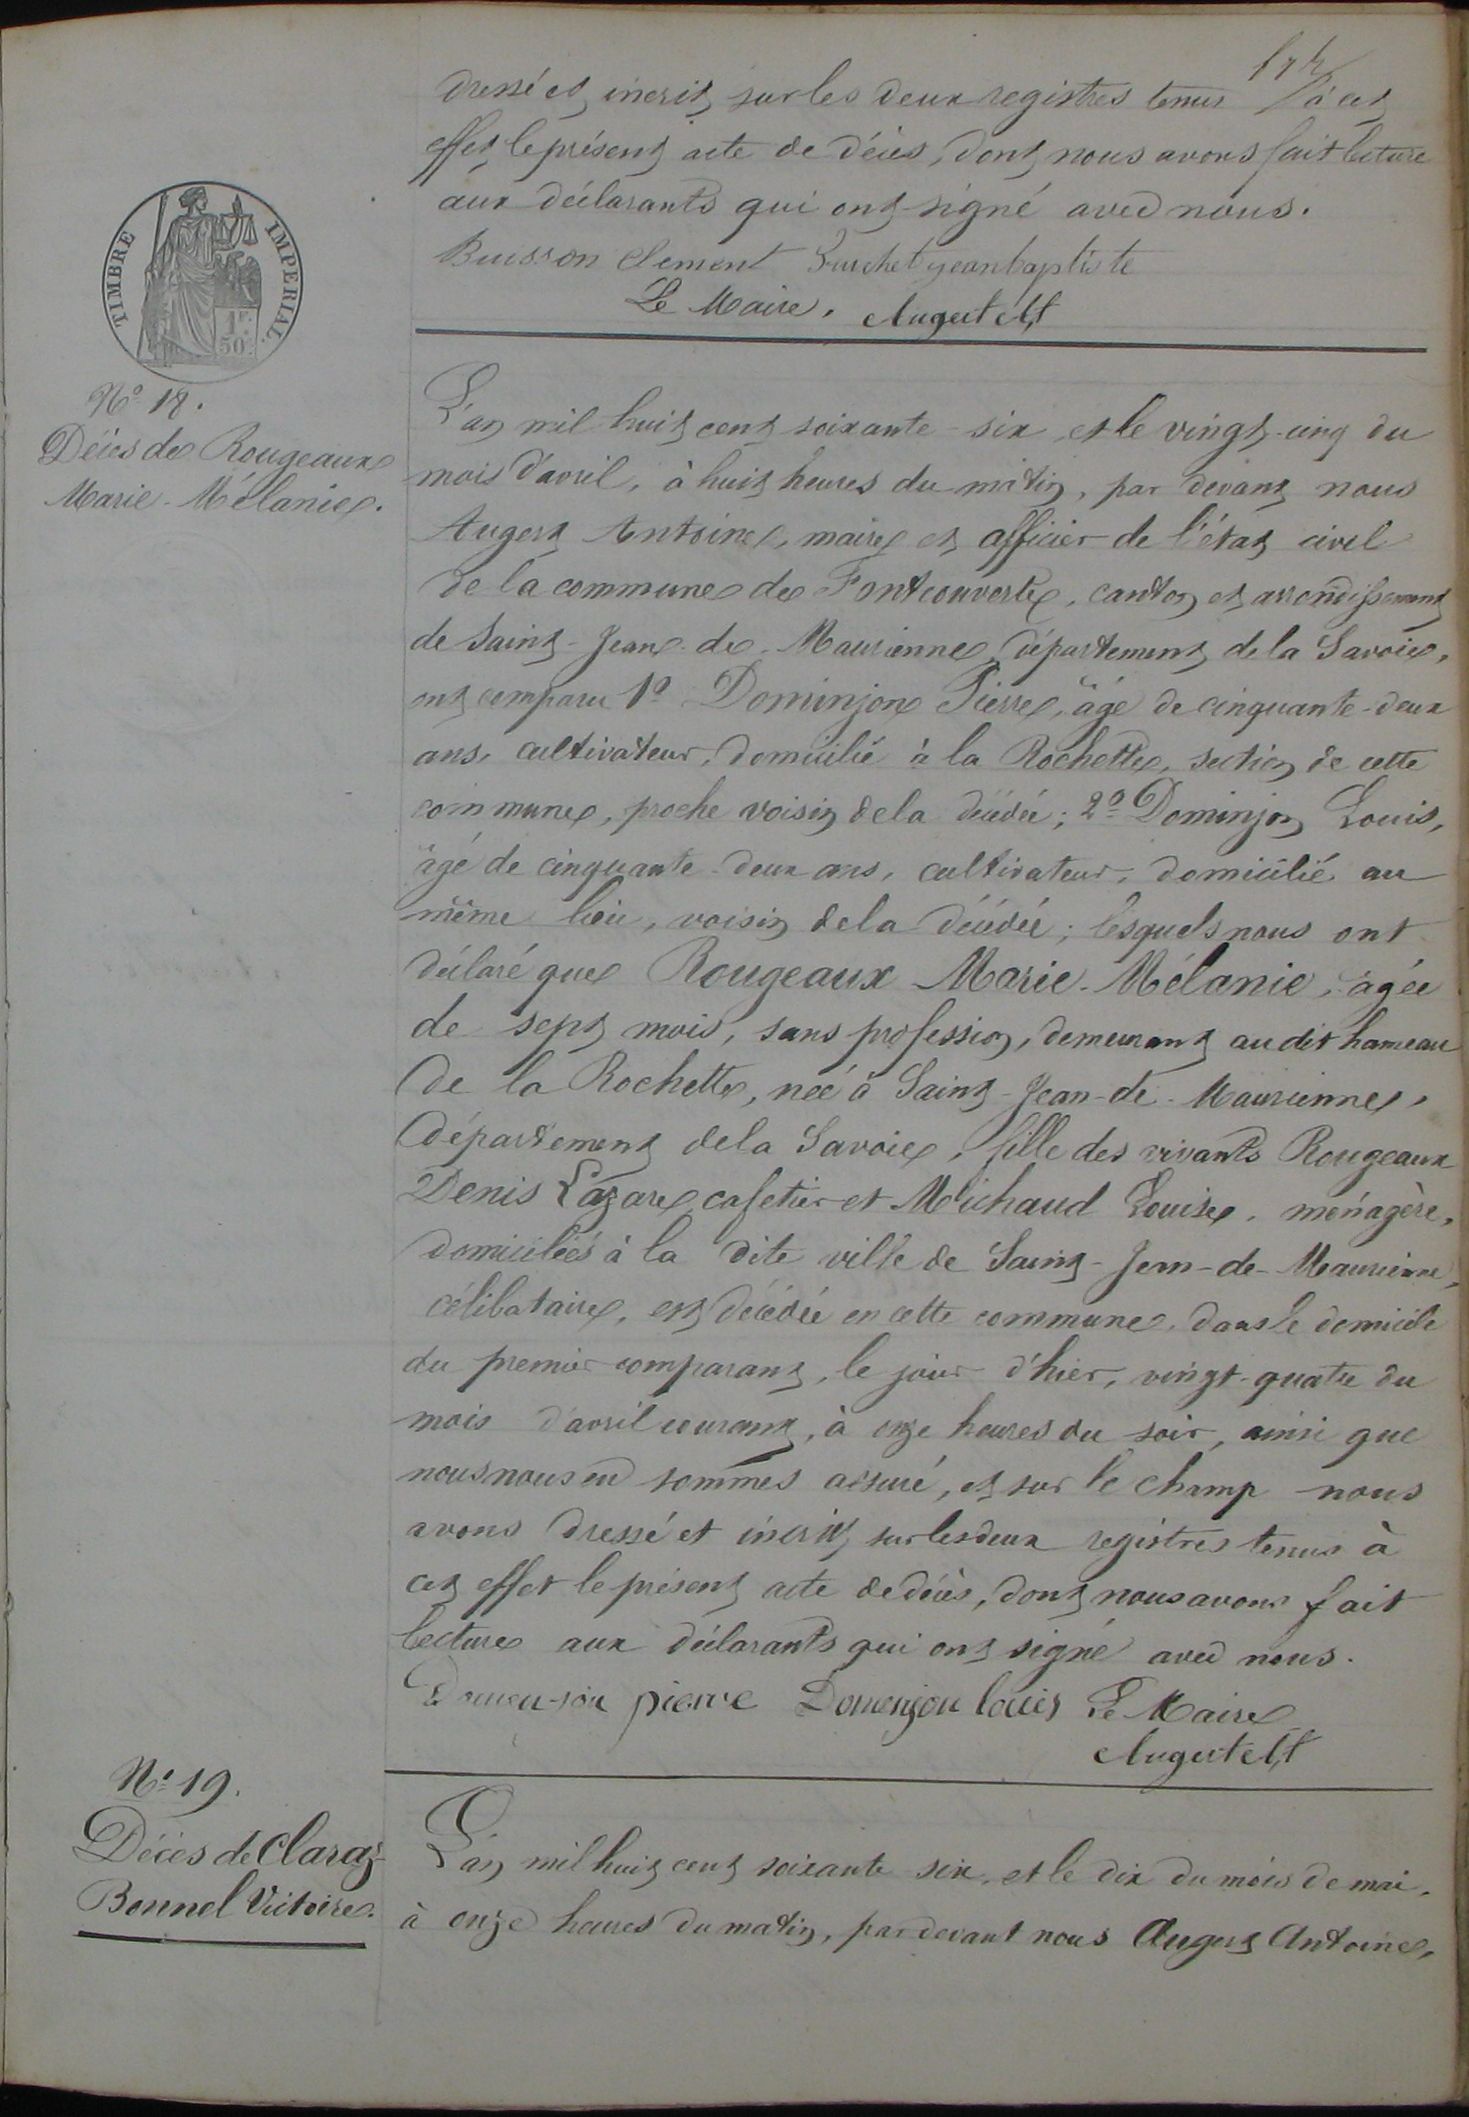 dressé et inscrit sur les deux registres tenus à cet
effet le présent acte de décès, dont nous avons fait lecture
aux déclarants qui ont signé avec nous.
Buisson Clement jeanbaptiste
Le Maire. Augert At
TIMBRE IMPERIAL
1F.
50c.
N° 18.
Décès de Rougeaux
Marie-Mélanie.
L'an mil huit cent soixante-six et le vingt-cinq du
mois d'avril, à huit heures du matin, par devant nous
Augert Antoine, maire et officier de l'état civil
de la commune de Fontcouverte, canton et arrondissement
de Saint-Jean-de-Maurienne, département de la Savoie,
ont comparu 1° Dominjon Pierre, âgé de cinquante-deux
ans, cultivateur, domicilié à la Rochette, section de cette
commune, proche voisin de la décédée; 2° Dominjon Louis,
âgé de cinquante-deux ans, cultivateur, domicilié au
même lieu, voisin de la décédée; lesquels nous ont
déclaré que Rougeaux Marie-Mélanie, âgée
de sept mois, sans profession, demeurant au dit hameau
de la Rochette, née à Saint-Jean-de-Maurienne,
département de la Savoie, fille des vivants Rougeaux
Denis Lazare, cafetier et Michaud Louise, ménagère,
domiciliés à la dite ville de Saint-Jean-de-Maurienne,
célibataire, est décédée en cette commune, dans le domicile
du premier comparant, le jour d'hier, vingt-quatre du
mois d'avril courant, à onze heures du soir, ainsi que
nous nous en sommes assuré, et sur le champ nous
avons dressé et inscrit sur les deux registres tenus à
cet effet le présent acte de décès, dont nous avons fait
lecture aux déclarants qui ont signé avec nous.
pierre Domenjon louis Le Maire
Augert At
N° 19.
Décès de Claraz-
Bonnel Victoire.
L'an mil huit cent soixante six, et le dix du mois de mai,
à onze heures du matin, par devant nous Augert Antoine,